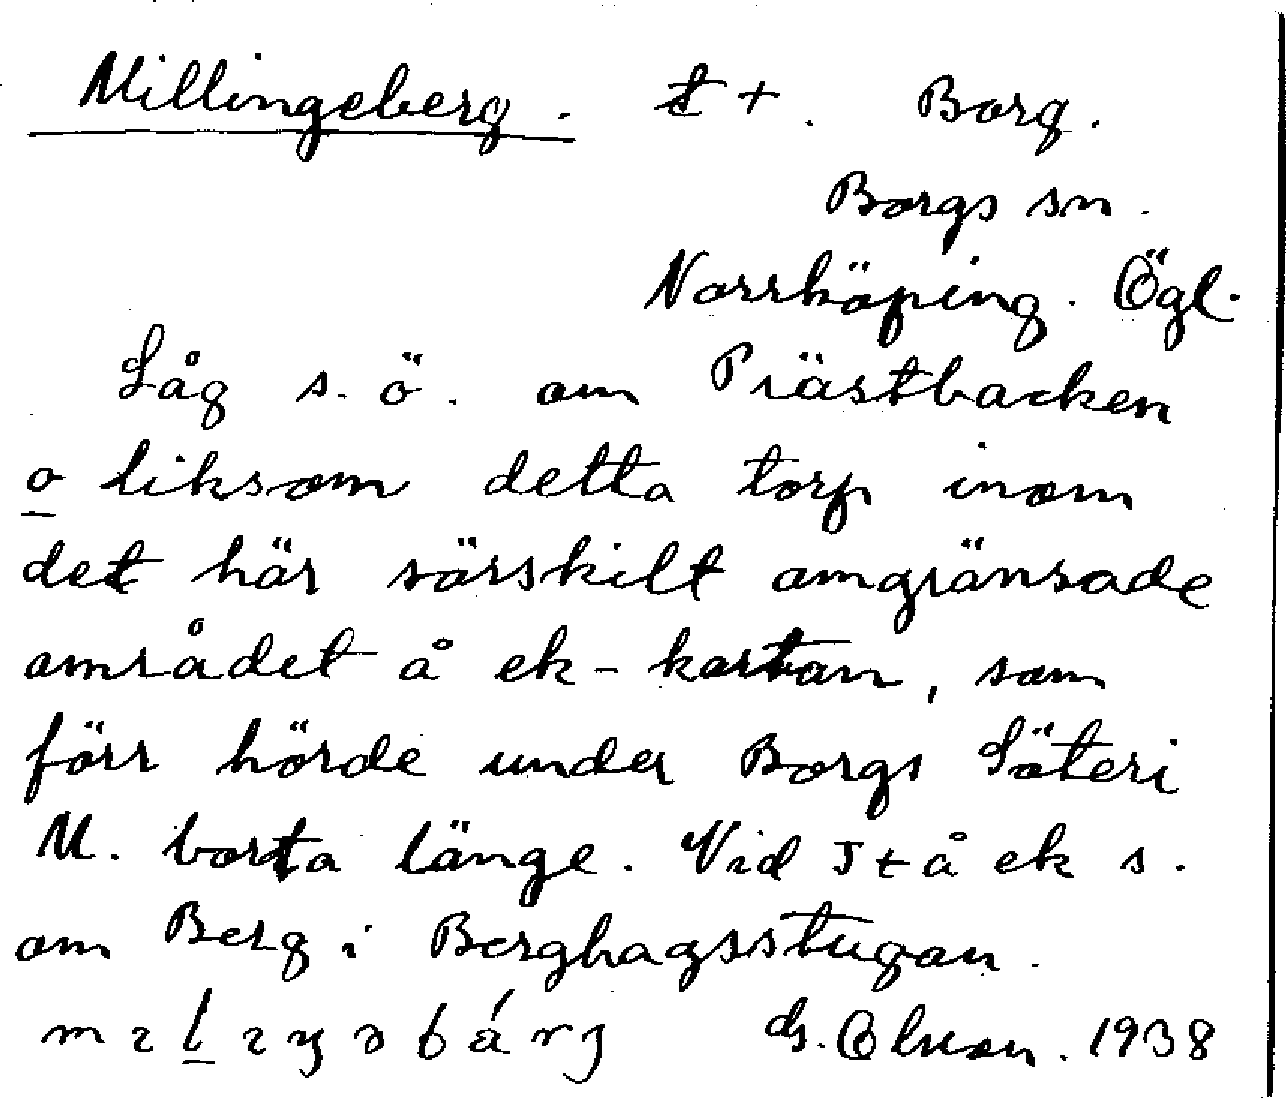 Millingeberg. t +. Borg.
Borgs sn.
Norrköping. Ögl.
Låg s. ö. om Prästbacken
o liksom detta torp inom
det här särskilt omgränsade
området å ek-kartan, som
förr hörde under Borgs Säteri
M. borta länge. Vid J t å ek s.
om Berg i Berghagsstugan.
G. Olsson. 1938